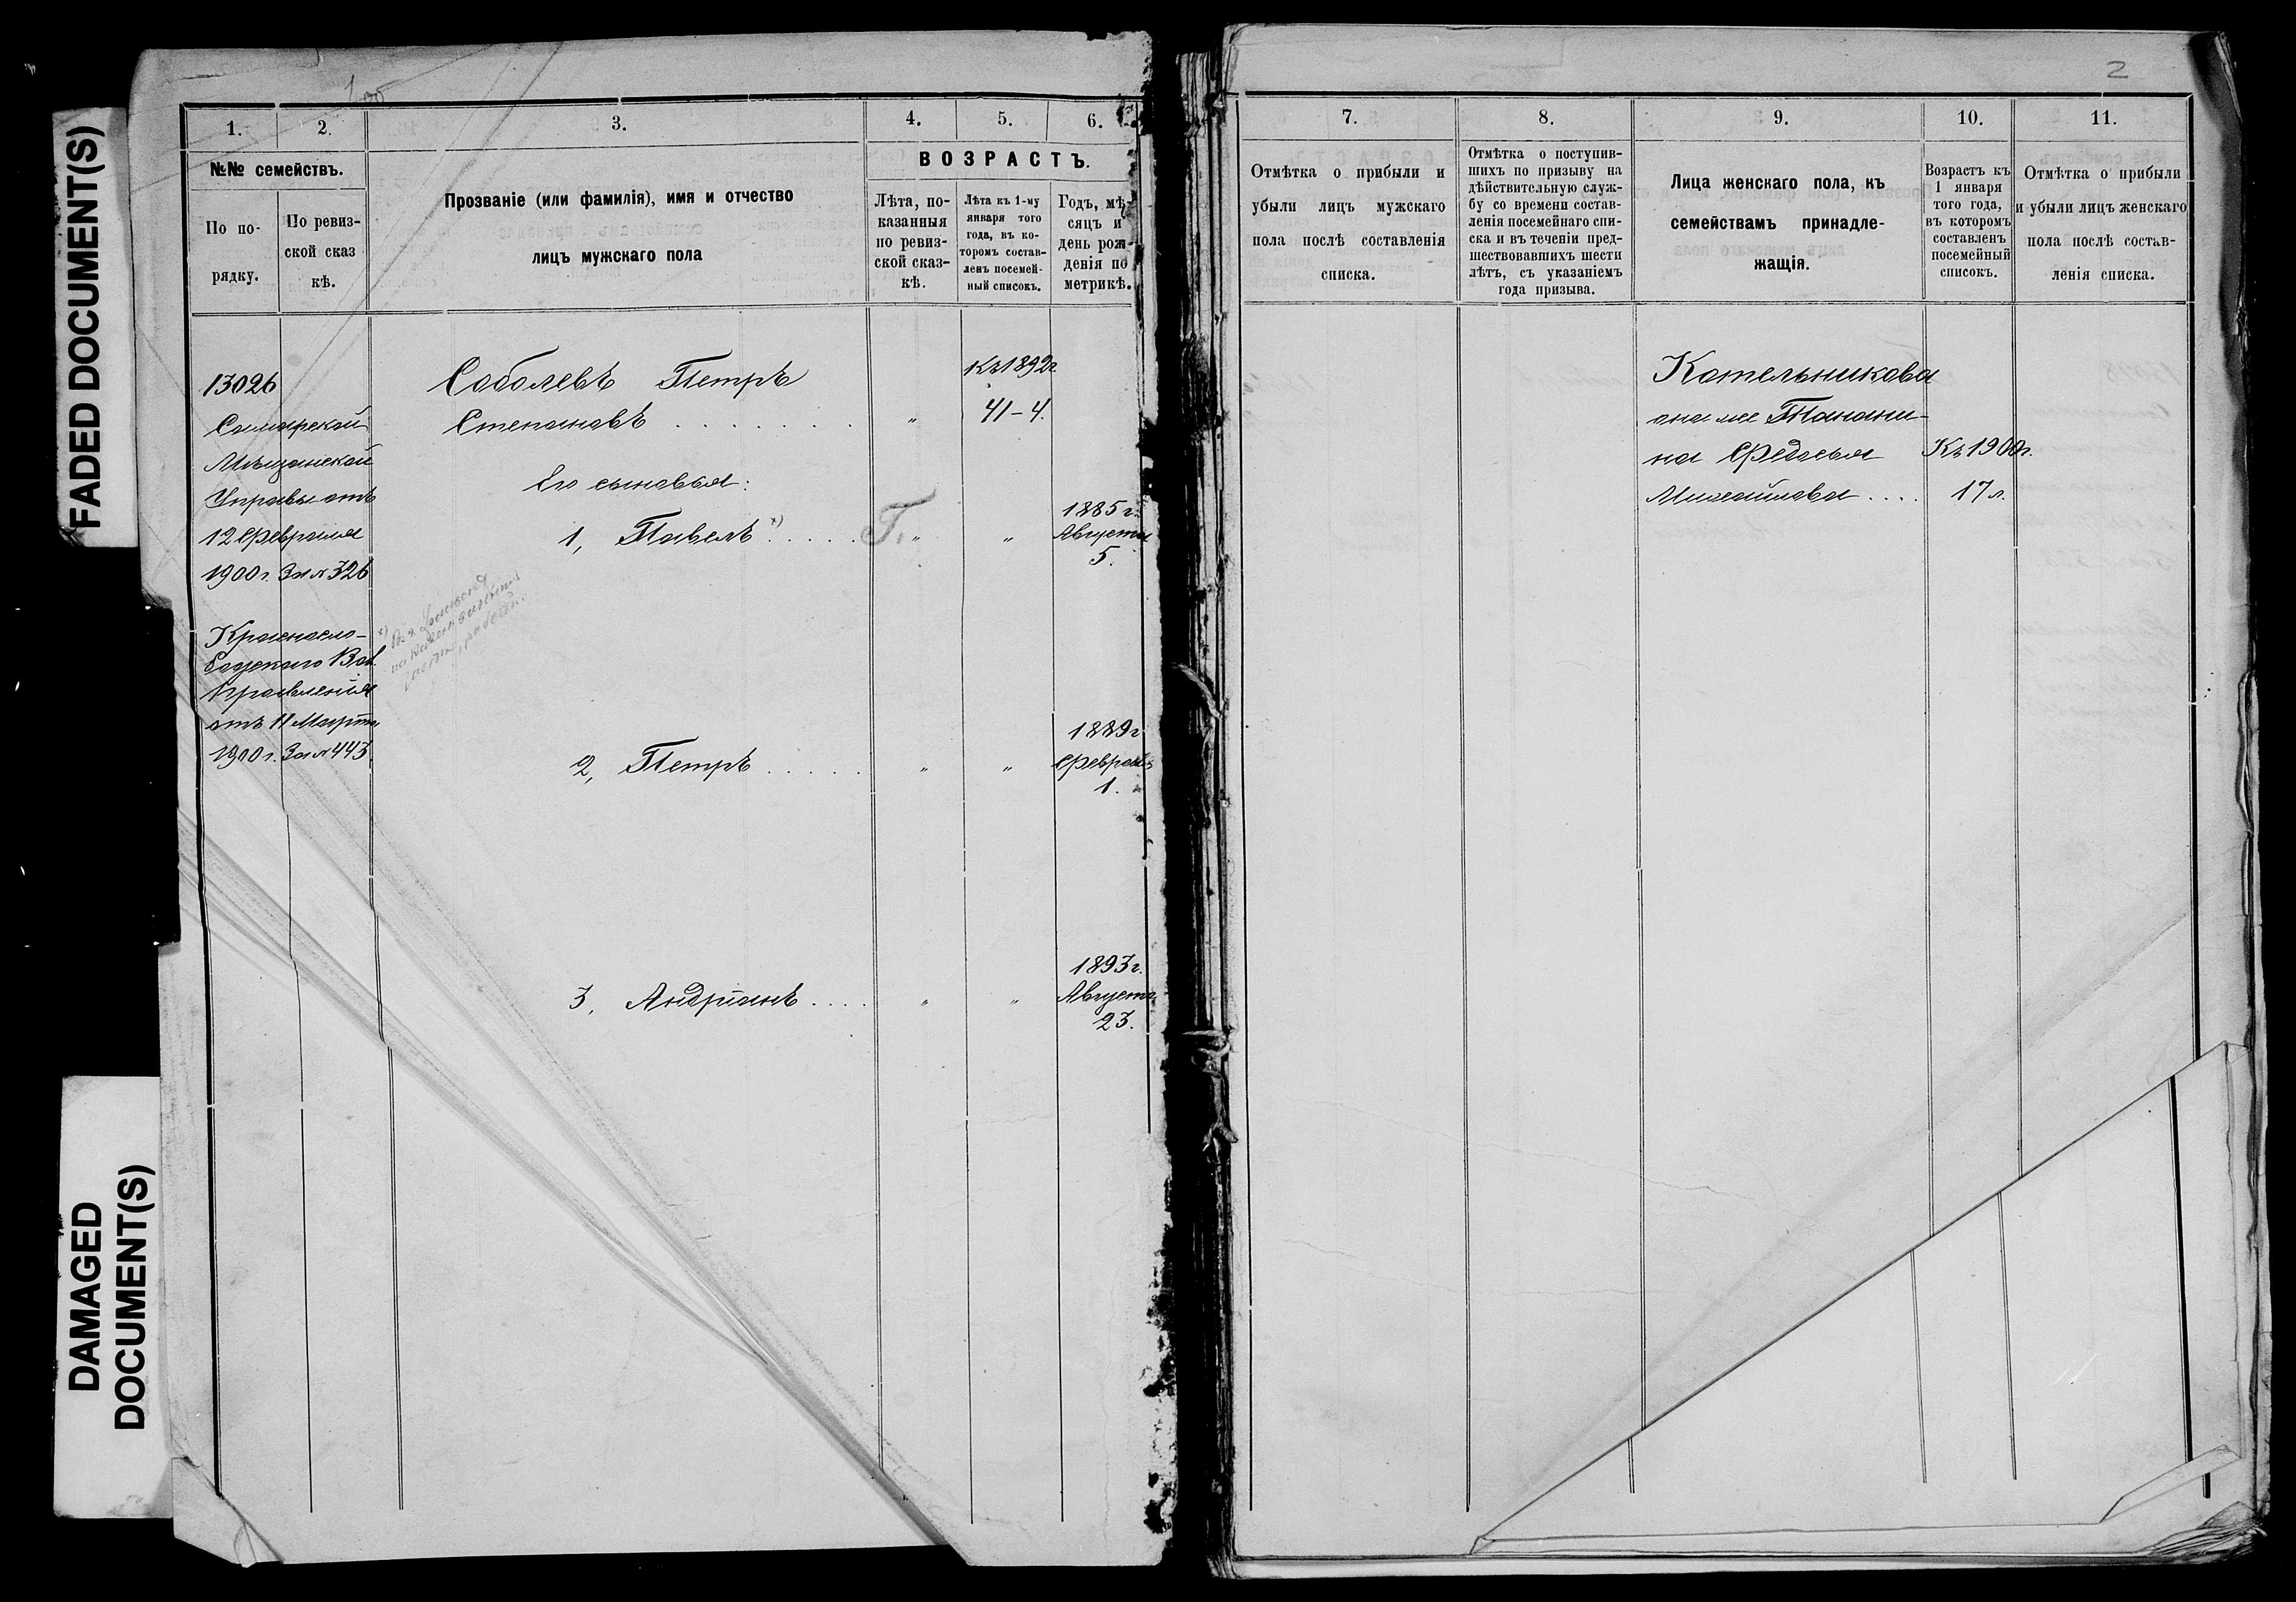 FADED DOCUMENT(S)
DAMAGED
DOCUMENT(S)
1.
2.
3.
4.
5.
6.
№№ семействъ.
По по-
рядку.
По ревиз-
ской сказ
кѣ.
Прозваніе (или фамилія), имя и отчество
лицъ мужскаго пола
ВОЗРАСТЪ.
Лѣта, по-
казанныя
по ревиз-
ской сказ-
кѣ.
Лѣта къ 1-му
января того
года, въ ко-
торомъ состав-
ленъ посемей-
ный списокъ.
Годъ, мѣ-
сяцъ и
день рож-
денія по
метрикѣ.
13026
Самарской
Мѣщанской
Управы отъ
12 Февраля
1900 г. За № 326
Краснасло-
бодскаго Вол.
Правленія
отъ 11 Марта
1900 г. За № 443.
Соболевъ Петръ
Степановъ . . . . . . . „
Къ 1892 г
41-4.
Его сыновья:
1, Павелъ х) . . . . . Г. „ „
1885 г.
Августа
5.
2, Петръ . . . . . „ „
1889 г
Февраля
1.
3, Андріанъ . . . . „ „
1893 г.
Августа
23.
2
7.
8.
9.
10.
11.
Отмѣтка о прибыли и
убыли лицъ мужскаго
пола послѣ составленія
списка.
Отмѣтка о поступив-
шихъ по призыву на
дѣйствительную служ-
бу со времени состав-
ленія посемейнаго спи-
ска и въ теченіи пред-
шествовавшихъ шести
лѣтъ, съ указаніемъ
года призыва.
Лица женскаго пола, къ
семействамъ принадле-
жащія.
Возрастъ къ
1 января
того года,
въ которомъ
составленъ
посемейный
списокъ.
Отмѣтка о прибыли
и убыли лицъ женскаго
пола послѣ состав-
ленія списка.
Котельникова
она же Панани-
на Федосья
Михайлова . . . .
Къ 1900 г.
17 л.